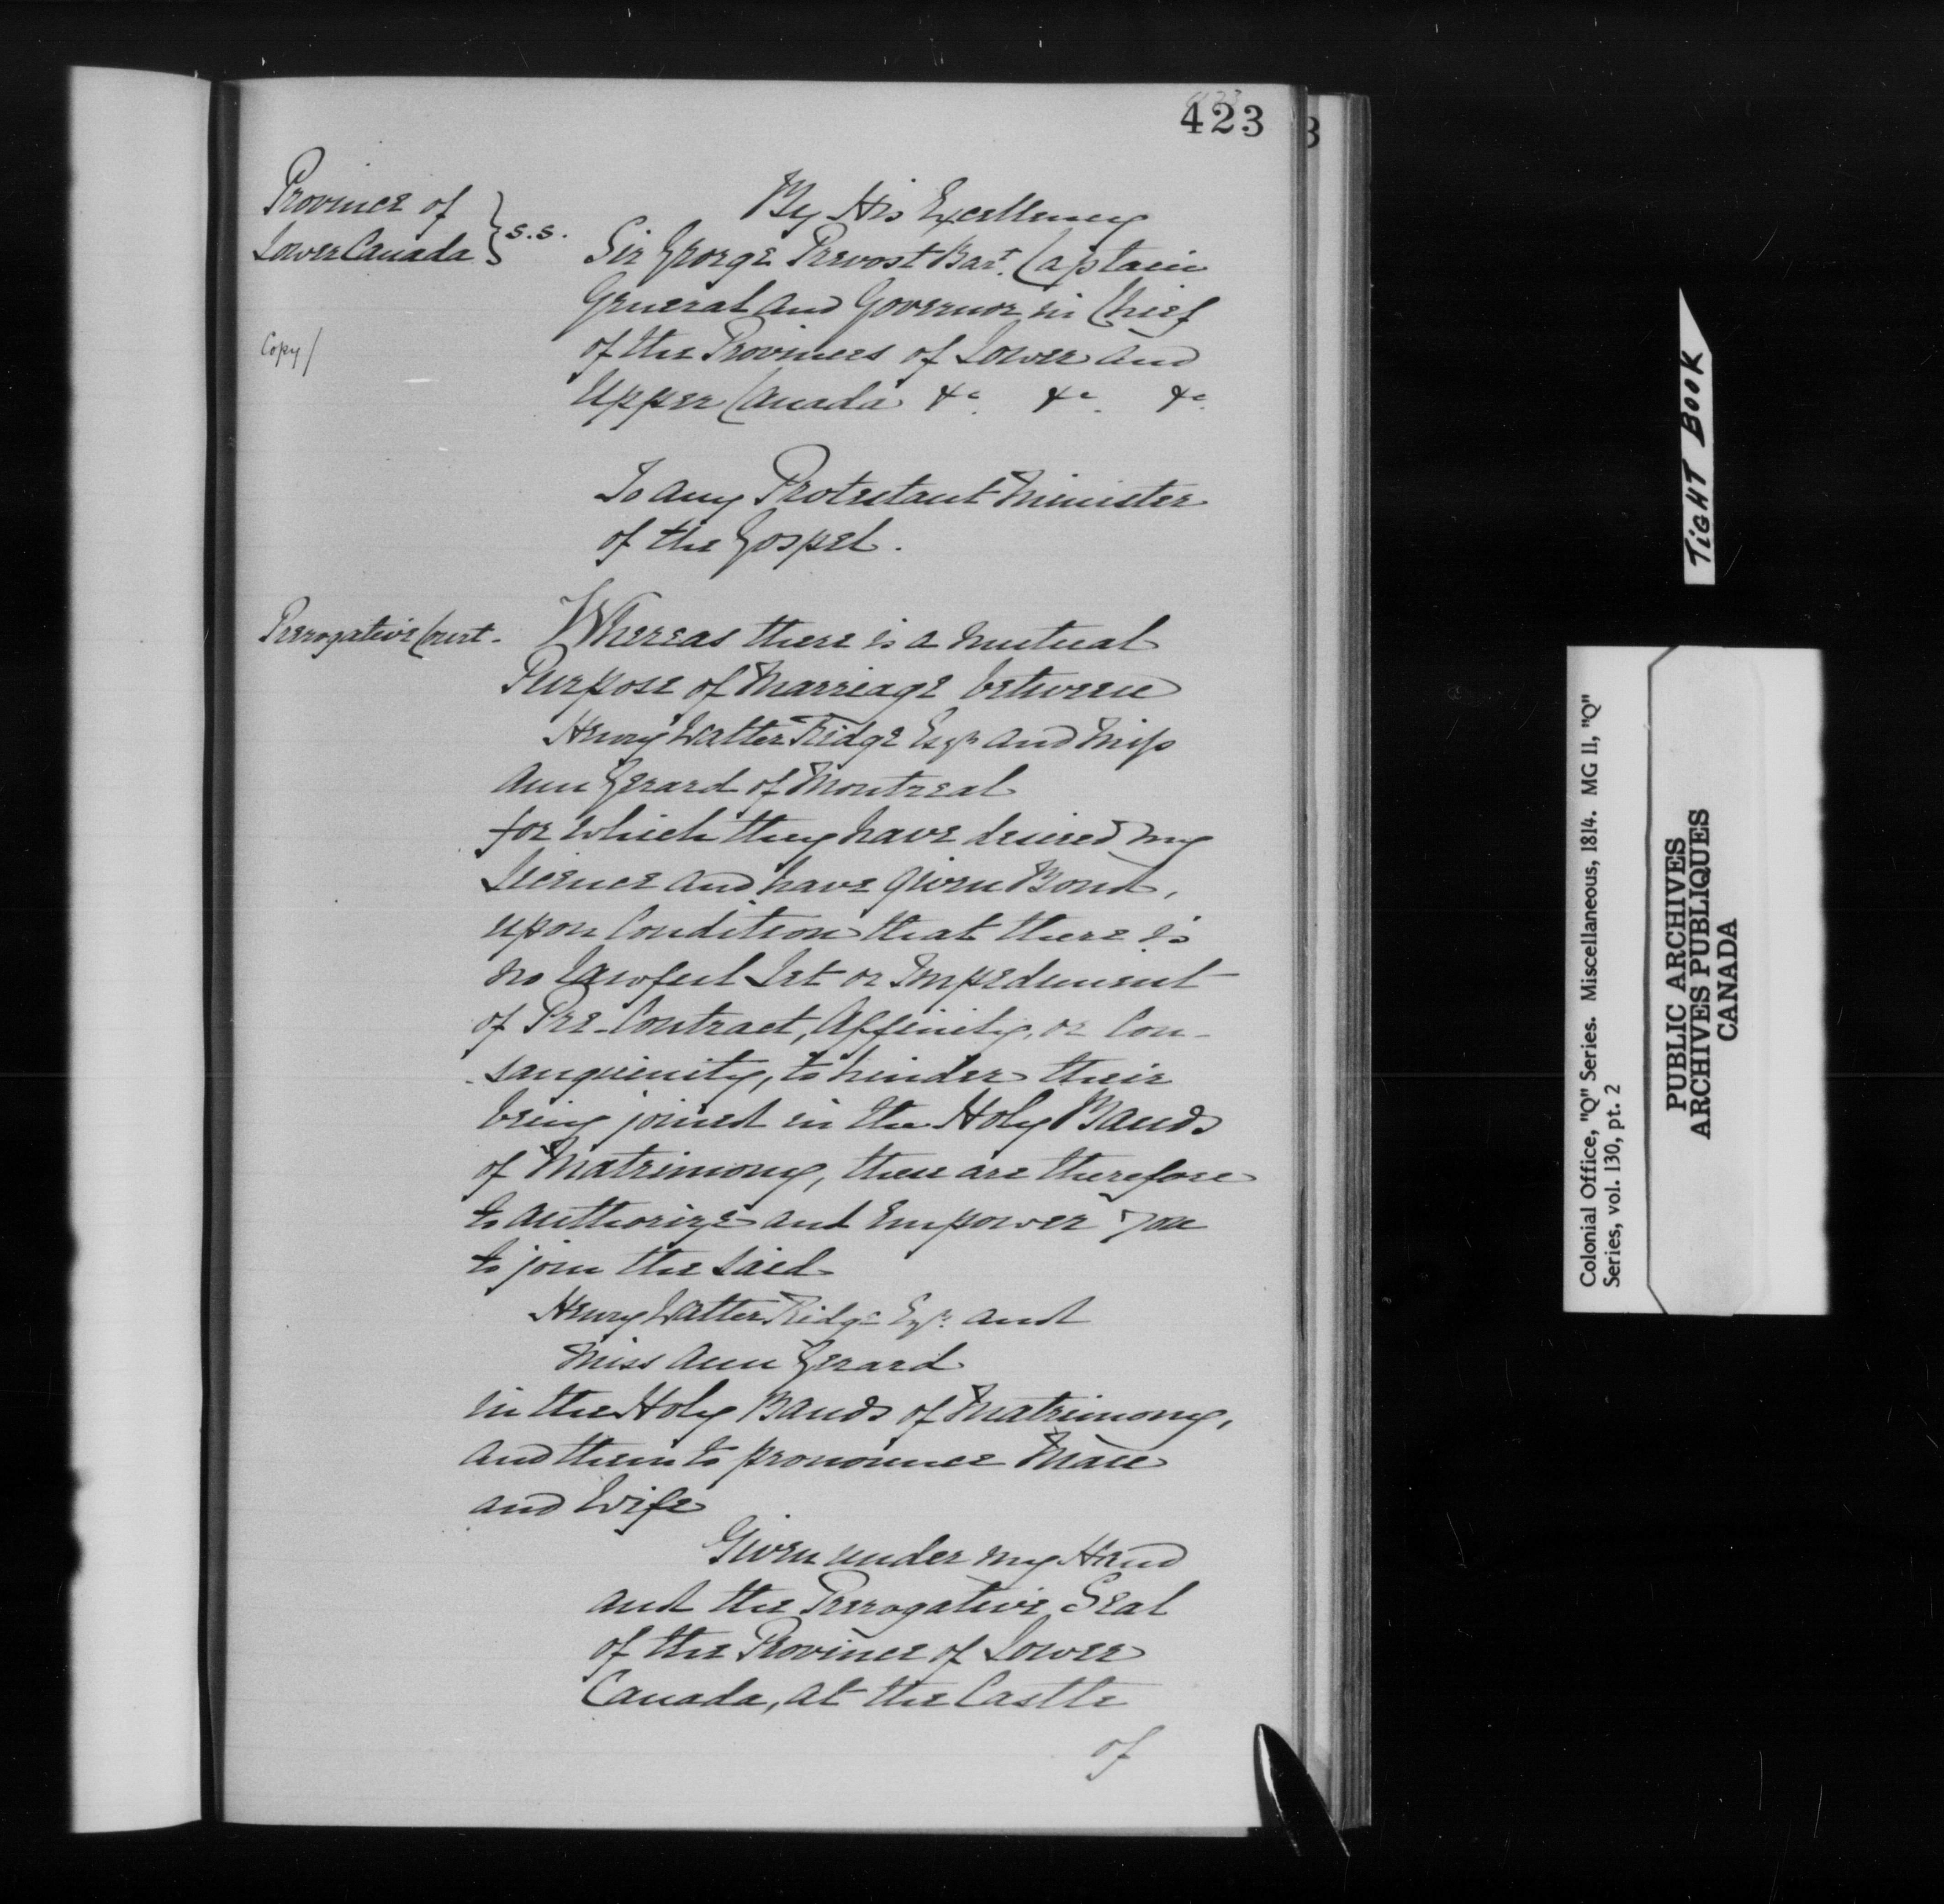 423
Province of
Lower Canada } S.S.
Copy/
By His Excellency
Sir George Prevost Bart. Captain
General and Governor in Chief
of the Provinces of Lower and
Upper Canada &c. &c. &c.
To any Protestant Minister
of the Gospel.
Prerogative Court.
Whereas there is a mutual
Purpose of Marriage between
Henry Walter Ridge Esqr. and Miss
Ann Gerard of Montreal
for which they have desired my
License and have given Bond,
upon Condition that there is
no lawful Let or Impediment
of Pre-Contract, Affinity, or Con-
sanguinity, to hinder their
being joined in the Holy Bands
of Matrimony, these are therefore
to authorize and Empower you
to join the said
Henry Walter Ridge Esqr. and
Miss Ann Gerard
in the Holy Bands of Matrimony,
and them to pronounce Man
and Wife
Given under my Hand
and the Prerogative Seal
of the Province of Lower
Canada, at the Castle
of
TIGHT BOOK
Colonial Office, "Q" Series. Miscellaneous, 1814. MG 11, "Q"
Series, vol. 130, pt. 2
PUBLIC ARCHIVES
ARCHIVES PUBLIQUES
CANADA